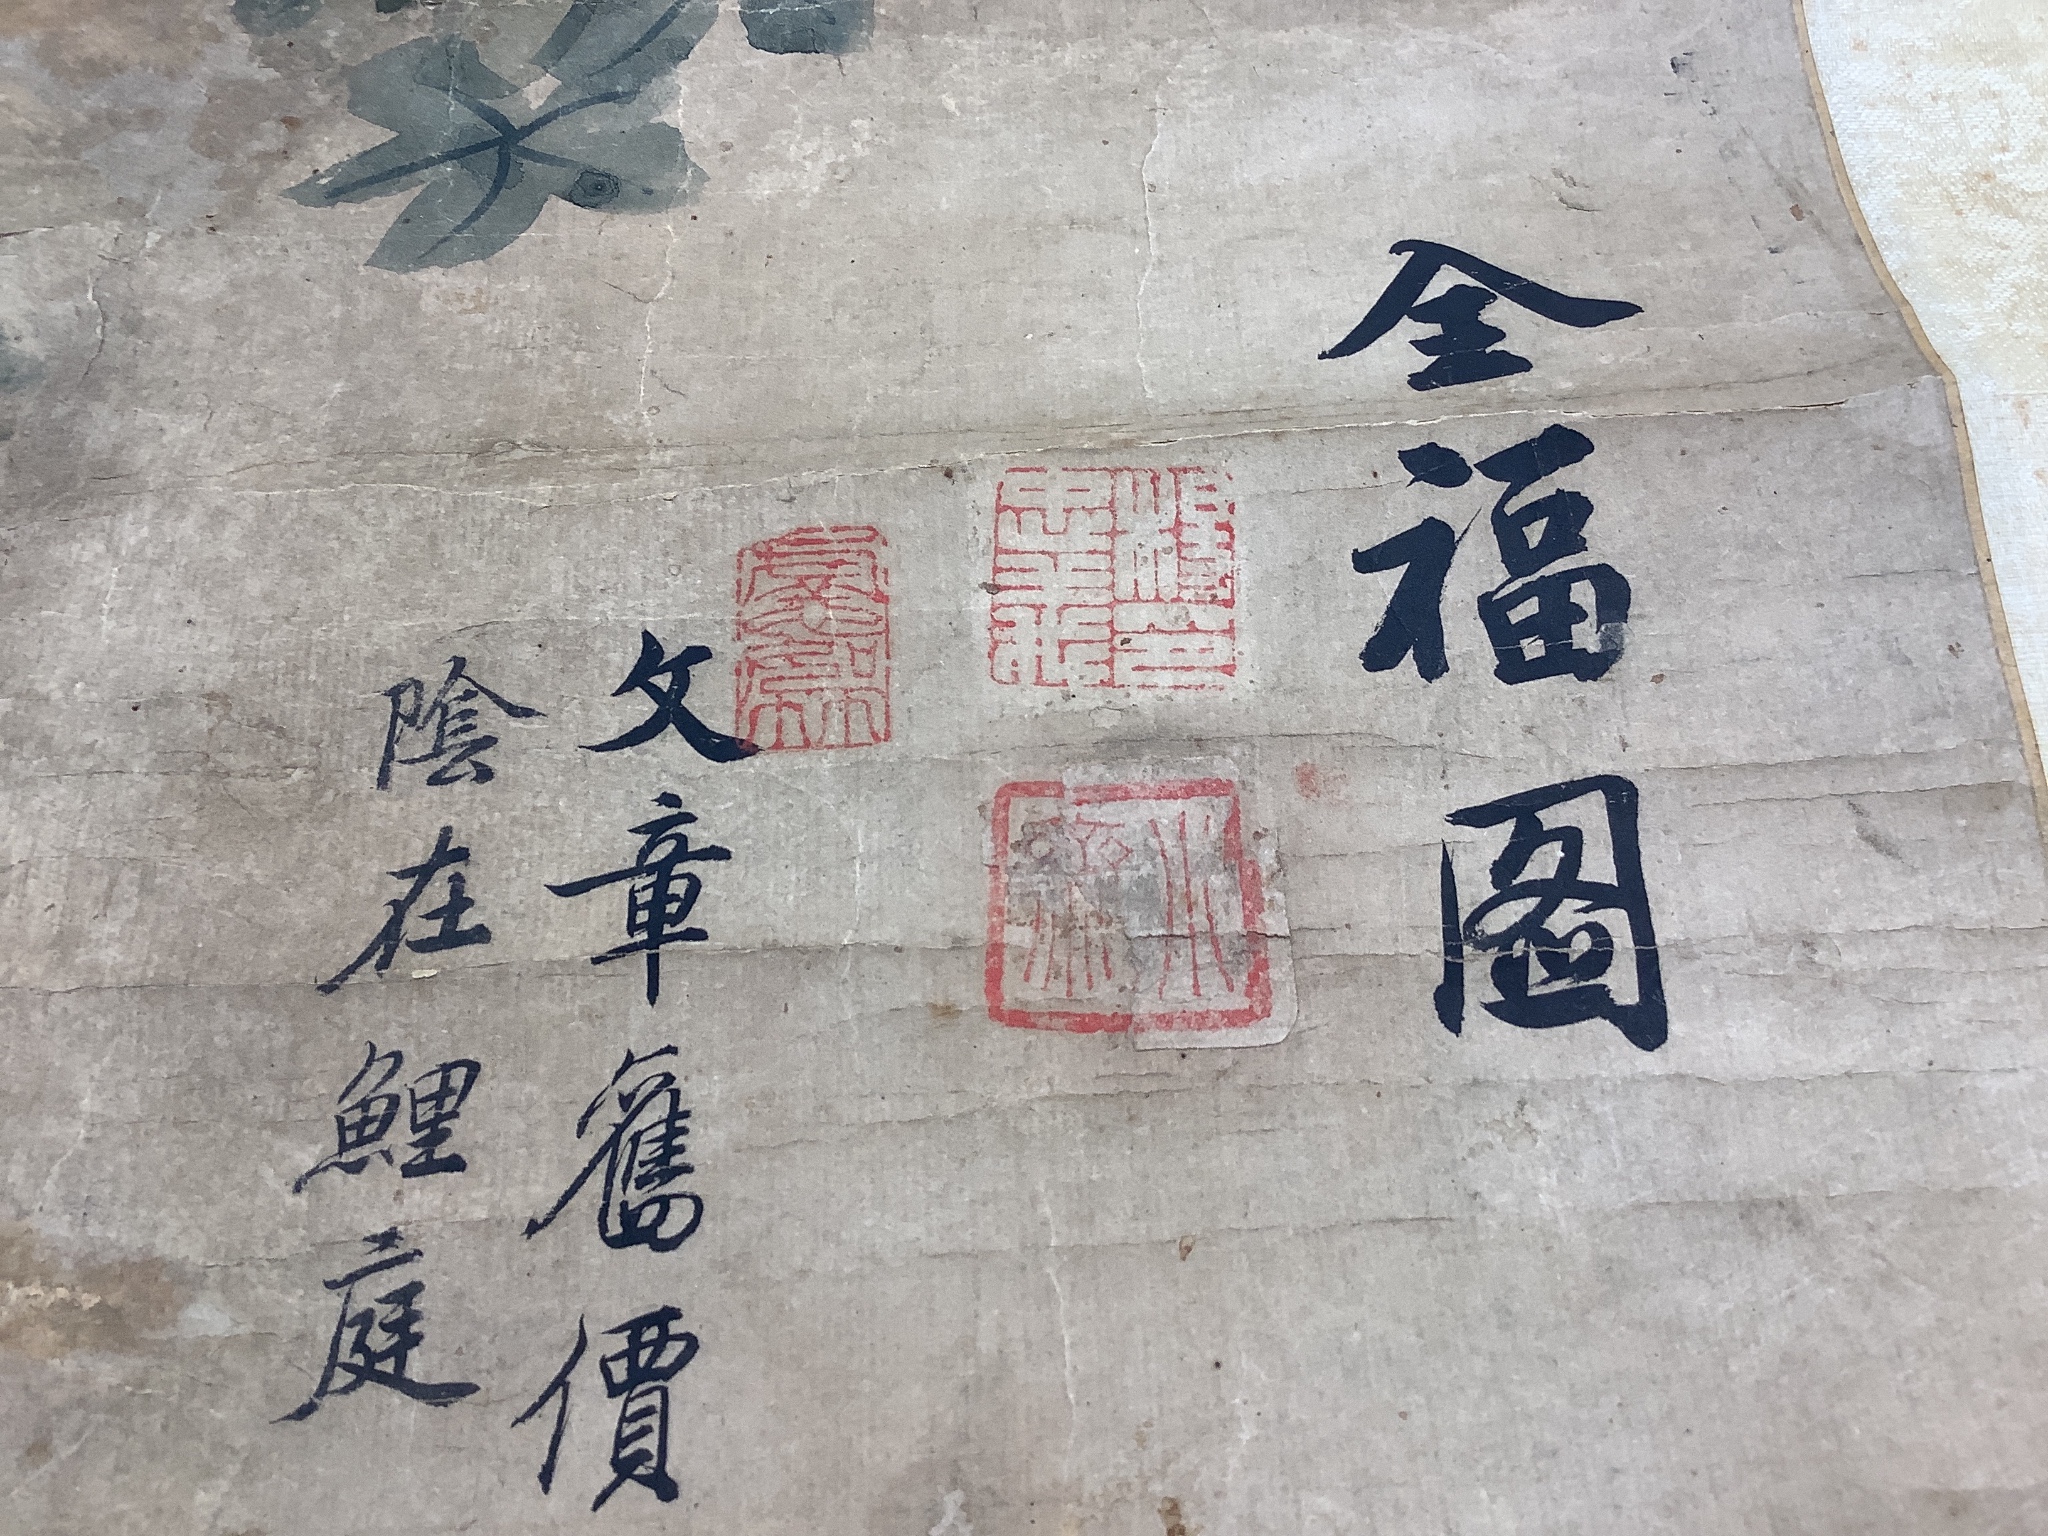 全福圖
文章舊價
陰在鯉庭